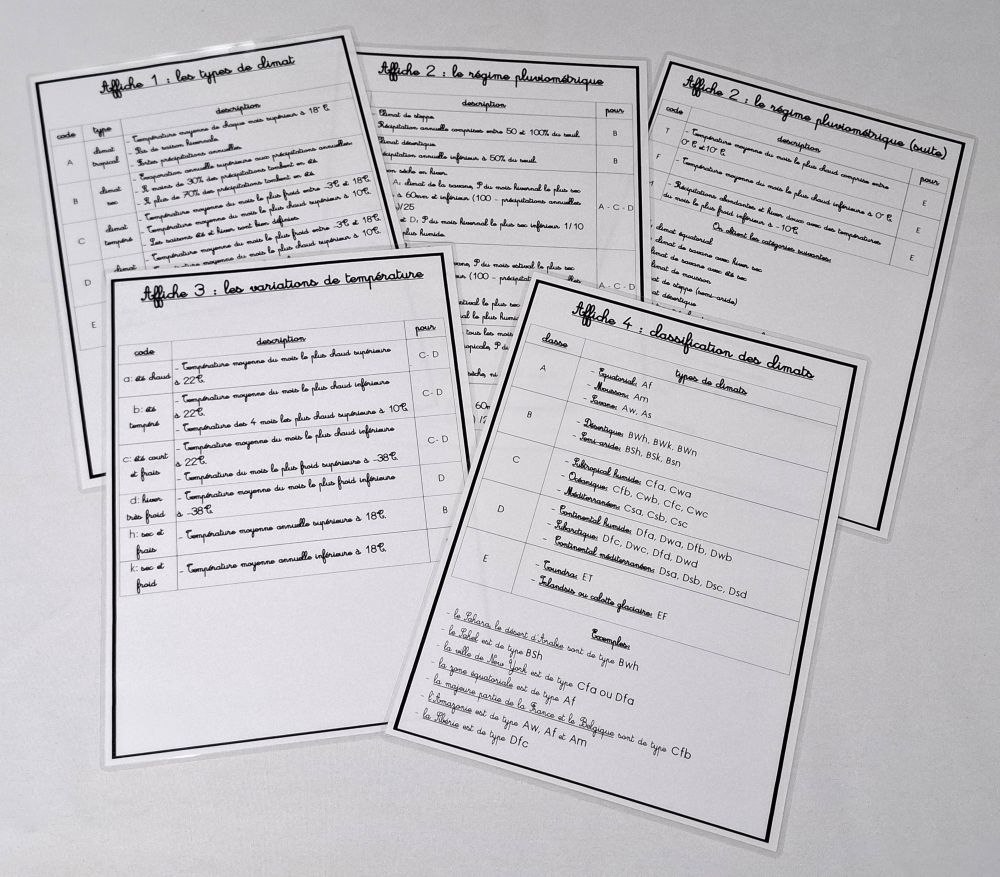 Affiche 1 : les types de climat
code type description
A climat tropical
- Température moyenne de chaque mois supérieure à 18°C
- Pas de saison hivernale
- Fortes précipitations annuelles
B climat sec
- Évaporation annuelle supérieure aux précipitations annuelles
- À moins de 30% des précipitations tombent en été
- À plus de 70% des précipitations tombent en été
C climat tempéré
- Température moyenne du mois le plus froid entre -3°C et 18°C
- Température moyenne du mois le plus chaud supérieure à 10°C
- Les saisons été et hiver sont bien définies
D climat
Température moyenne du mois le plus froid
le plus chaud supérieure à 10°C
E
Affiche 2 : le régime pluviométrique
description pour
Climat de steppe
Précipitation annuelle comprises entre 50 et 100% du seuil
B
Climat désertique
précipitation annuelle inférieure à 50% du seuil
B
son sèche en hiver
A: climat de la savane, P du mois hivernal le plus sec
à 60mm et inférieur (100 - précipitations annuelles
)/25
et D, P du mois hivernal le plus sec inférieur 1/10
plus humide
A - C - D
P du mois estival le plus sec
(100 - précipitat
A - C - D
estival le plus sec
le plus humid
tous les mois
tropicale, P du
sèche, ni
60m
Affiche 2 : le régime pluviométrique (suite)
code description pour
T
- Température moyenne du mois le plus chaud comprise entre
0°C et 10°C
E
F
- Température moyenne du mois le plus chaud inférieure à 0°C
E
- Précipitations abondantes et hiver doux avec des températures
du mois le plus froid inférieur à -10°C
E
On obtient les catégories suivantes:
climat équatorial
climat de savane avec hiver sec
climat de savane avec été sec
climat de mousson
climat de steppe (semi-aride)
at désertique
Affiche 3 : les variations de température
code description pour
a: été chaud
- Température moyenne du mois le plus chaud supérieure
à 22°C.
C - D
b: été tempéré
- Température moyenne du mois le plus chaud inférieure
à 22°C.
- Température des 4 mois les plus chaud supérieure à 10°C
C - D
c: été court et frais
- Température moyenne du mois le plus chaud inférieure
à 22°C.
- Température du mois le plus froid supérieure à -38°C.
C - D
d: hiver très froid
- Température moyenne du mois le plus froid inférieure
à -38°C.
D
h: sec et frais
- Température moyenne annuelle supérieure à 18°C.
B
k: sec et froid
- Température moyenne annuelle inférieure à 18°C.
Affiche 4 : classification des climats
classe types de climats
A
- Équatorial: Af
- Mousson: Am
- Savane: Aw, As
B
- Désertique: BWh, BWk, BWn
- Semi-aride: BSh, BSk, Bsn
C
- Subtropical humide: Cfa, Cwa
- Océanique: Cfb, Cwb, Cfc, Cwc
- Méditerranéen: Csa, Csb, Csc
D
- Continental humide: Dfa, Dwa, Dfb, Dwb
- Subarctique: Dfc, Dwc, Dfd, Dwd
- Continental méditerranéen: Dsa, Dsb, Dsc, Dsd
E
- Toundra: ET
- Inlandsis ou calotte glaciaire: EF
Exemples:
- le Sahara, le désert d'Arabie sont de type Bwh
- le Sahel est de type BSh
- la ville de New York est de type Cfa ou Dfa
- la zone équatoriale est de type Af
- la majeure partie de la France et la Belgique sont de type Cfb
- l'Amazonie est de type Aw, Af et Am
- la Sibérie est de type Dfc